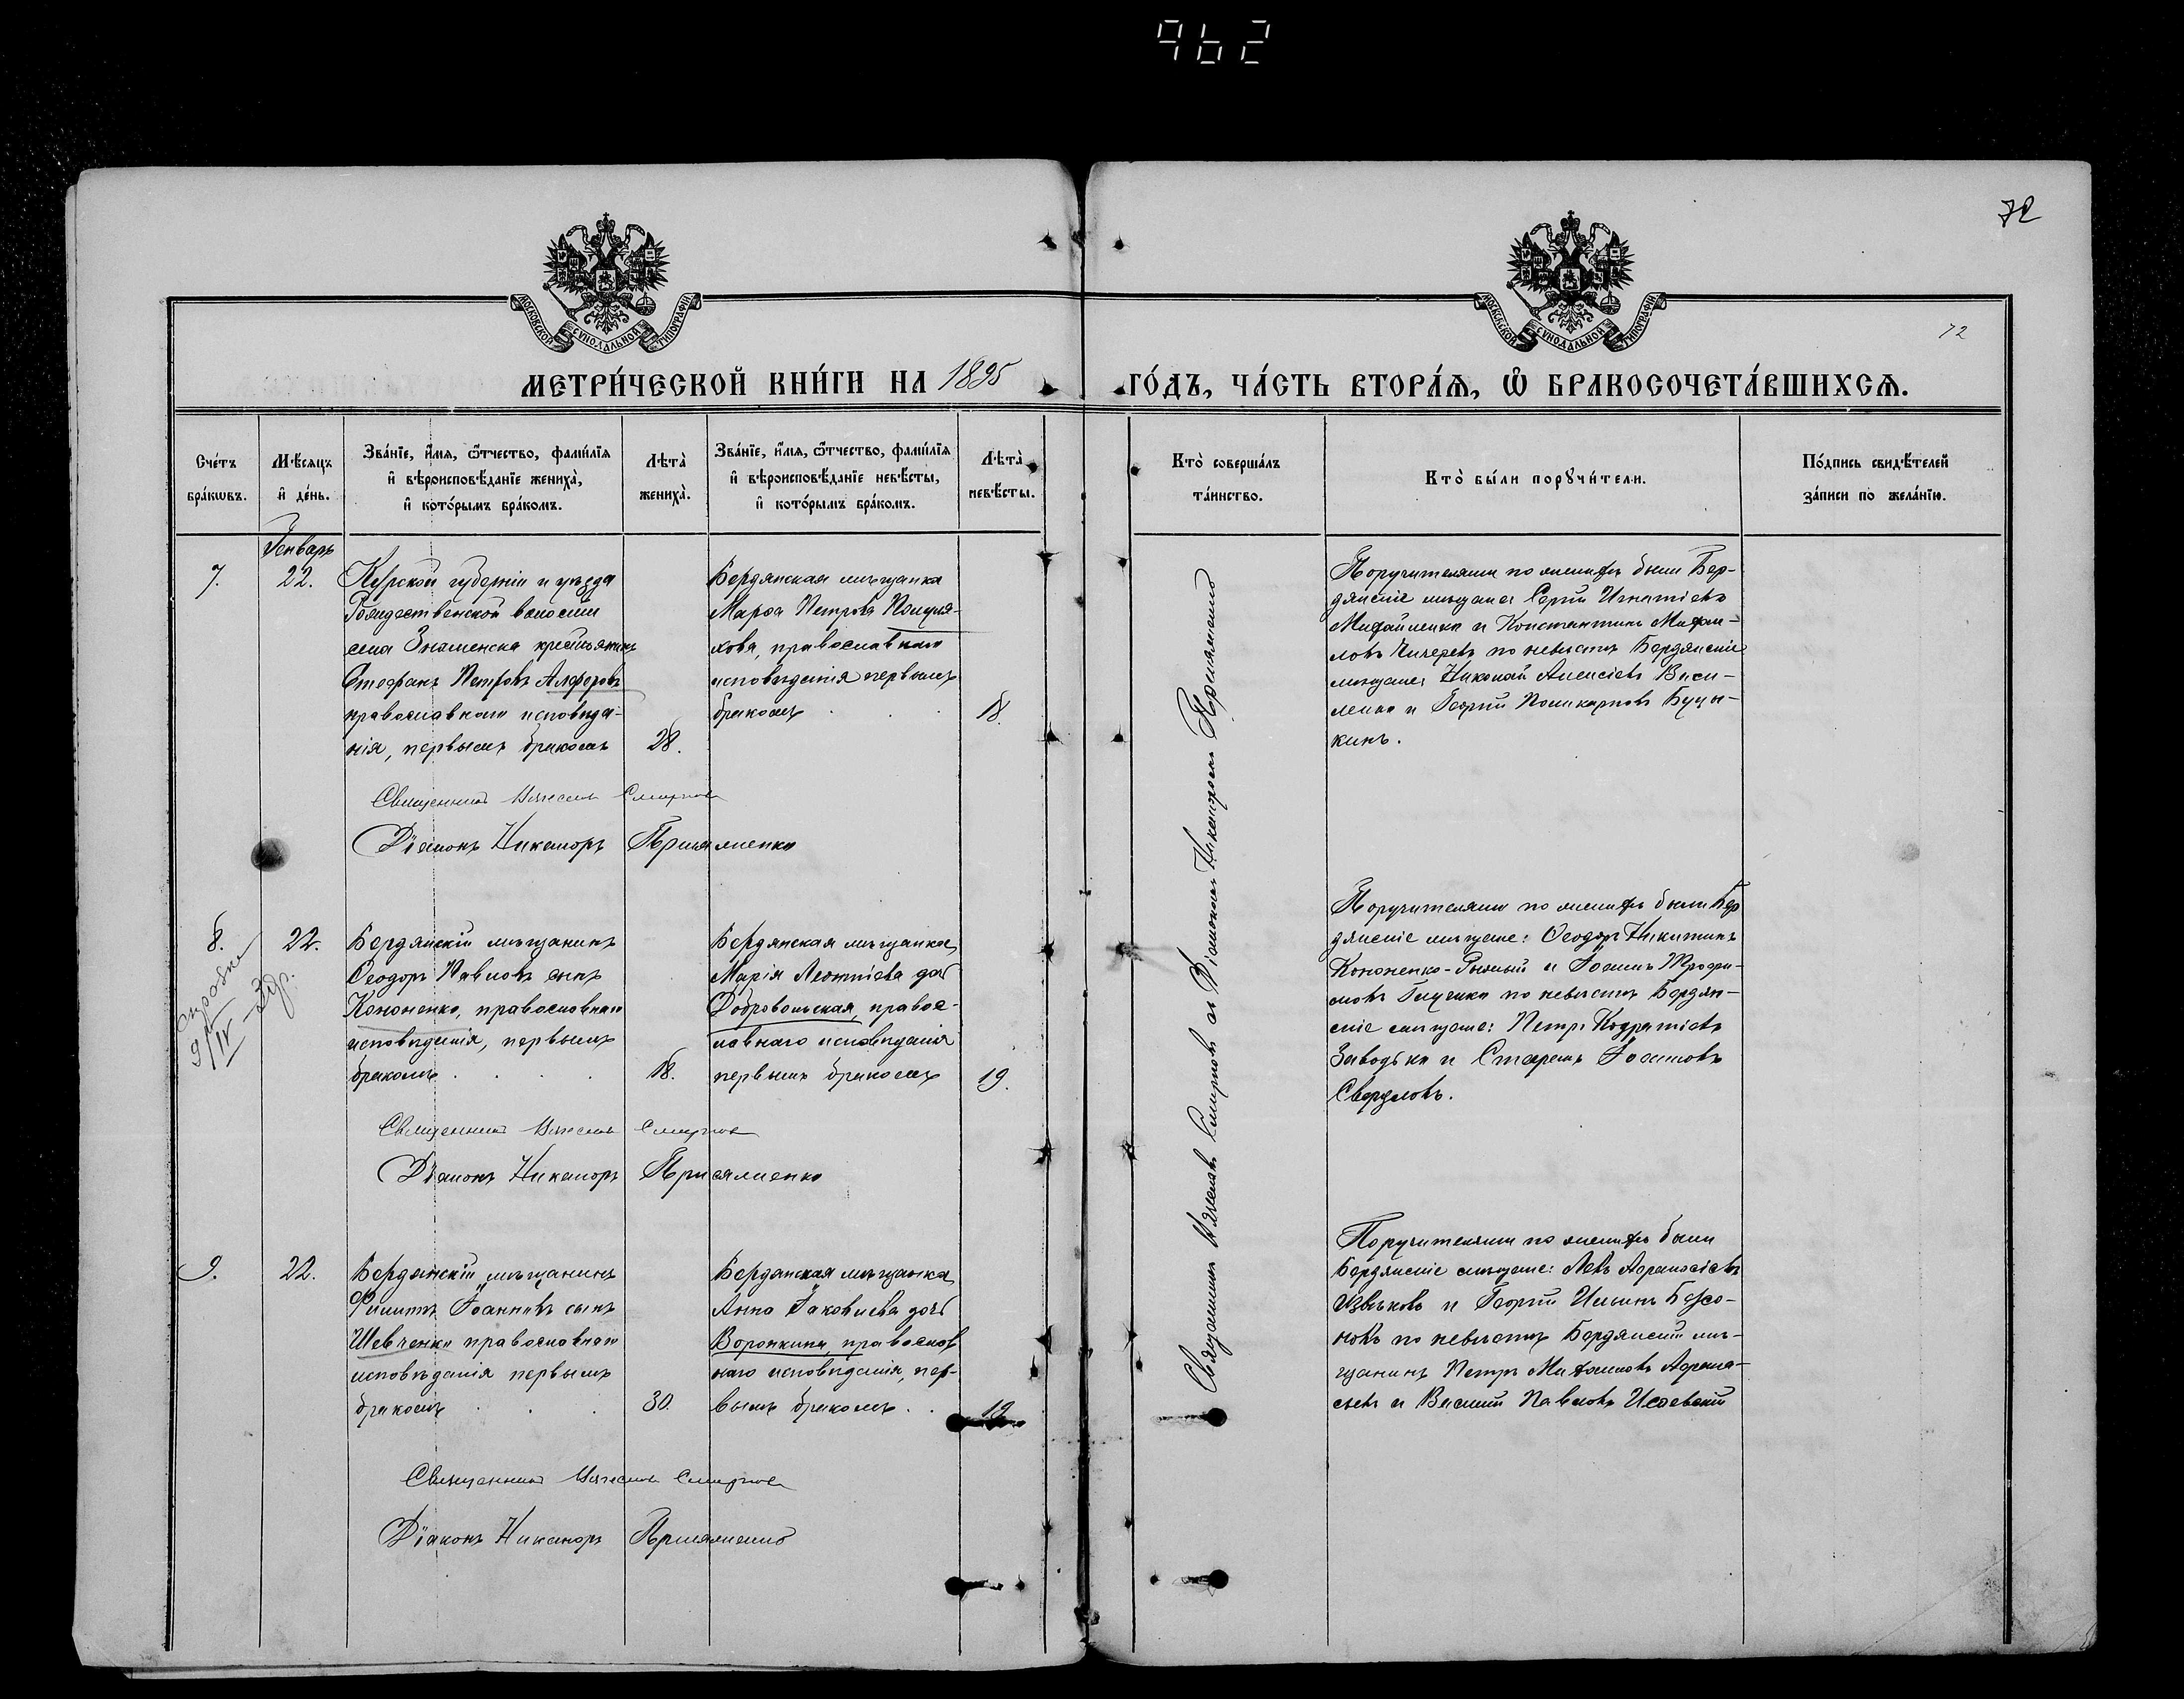 962
72
72
МОСКОВСКОЙ СУНОДАЛЬНОЙ ТИПОГРАФІИ
МОСКОВСКОЙ СУНОДАЛЬНОЙ ТИПОГРАФІИ
МЕТРИ́ЧЕСКОЙ КНИ́ГИ НА 1895 ГО́ДЪ, ЧА́СТЬ ВТОРА́Я, Ѡ БРАКОСОЧЕТА́ВШИХСЯ.
Сче́тъ
бра́кѡвъ.
Мѣ́сяцъ
и҆ де́нь.
Зва́нїе, и҆́мя, ѻ҆́тчество, фами́лїя
и҆ вѣроисповѣ́данїе жениха̀,
и҆ кото́рымъ бра́комъ.
Лѣта̀
жениха̀.
Зва́нїе, и҆́мя, ѻ҆́тчество, фами́лїя
и҆ вѣроисповѣ́данїе невѣ́сты,
и҆ кото́рымъ бра́комъ.
Лѣта̀
невѣ́сты.
Кто̀ соверша́лъ
та́инство.
Кто̀ бы́ли порꙋчи́тели.
По́дпись свидѣ́телей
за́писи по жела́нїю.
Генварь
7.
22.
Курской губерніи и уѣзда
Рождественской волости
села Знаменска крестьянинъ
Стефанъ Петровъ Алферовъ
православнаго исповѣда-
нія, первымъ бракомъ
28.
Бердянская мѣщанка
Марѳа Петрова
православнаго
исповѣданія первымъ
бракомъ
18.
Поручителями по женихѣ были Бер-
дянскіе мѣщане Игнатіевъ
Михайленко и Константинъ Михаи-
ловъ по невѣстѣ Бердянскіе
мѣщане: Николай Алексіевъ Васи-
ленко и Георгій Поликарповъ Буцы-
кинъ.
Священникъ Смирновъ
Діаконъ Никаноръ
8.
22.
Бердянскій мѣщанинъ
Ѳеодоръ Павловъ сынъ
Кононенко, православнаго
исповѣданія, первымъ
бракомъ
18.
Бердянская мѣщанка,
Марія Леонтіева дочь
Добровольская, правос-
лавнаго исповѣданія
первымъ бракомъ
19.
Поручителями по женихѣ были Бер
дянскіе мѣщане: Ѳеодоръ Никитинъ
Кононенко- и Іоаннъ Трофи-
мовъ по невѣстѣ Бердян-
скіе мѣщане: Петръ Кодратіевъ
и Стефанъ Іоанновъ
Свердловъ.
Священникъ Смирновъ
Діаконъ Никаноръ
9.
22.
Бердянскій мѣщанинъ
Филиппъ Іоанновъ сынъ
Шевченко православнаго
исповѣданія первымъ
бракомъ
30.
Бердянская мѣщанка
Анна Іаковлева дочь
Воронкина, православ
наго исповѣданія, пер-
вымъ бракомъ
19
Поручителями по женихѣ были
Бердянскіе мѣщане: Левъ Аѳанасіевъ
и Георгій Ильинъ
по невѣстѣ Бердянскій мѣ-
щанинъ Петръ Михаиловъ Аѳана-
сьевъ и Василій Павловъ
Священникъ Смирновъ
Діаконъ Никаноръ
Священникъ Смирновъ съ Діакономъ Никаноромъ